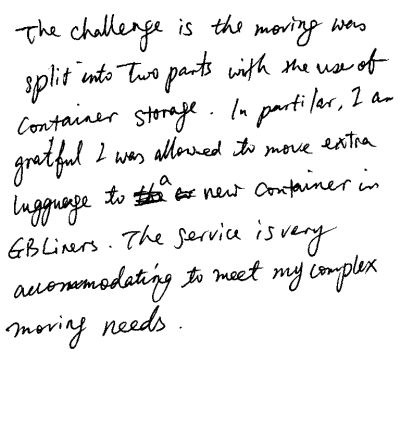 The challenge is the moving was
split into two parts with the use of
container storage. In partilar, I am
gratful I was allowed to move extra
lugguage to a new container in
GBLiners. The service is very
accommodating to meet my complex
moving needs.